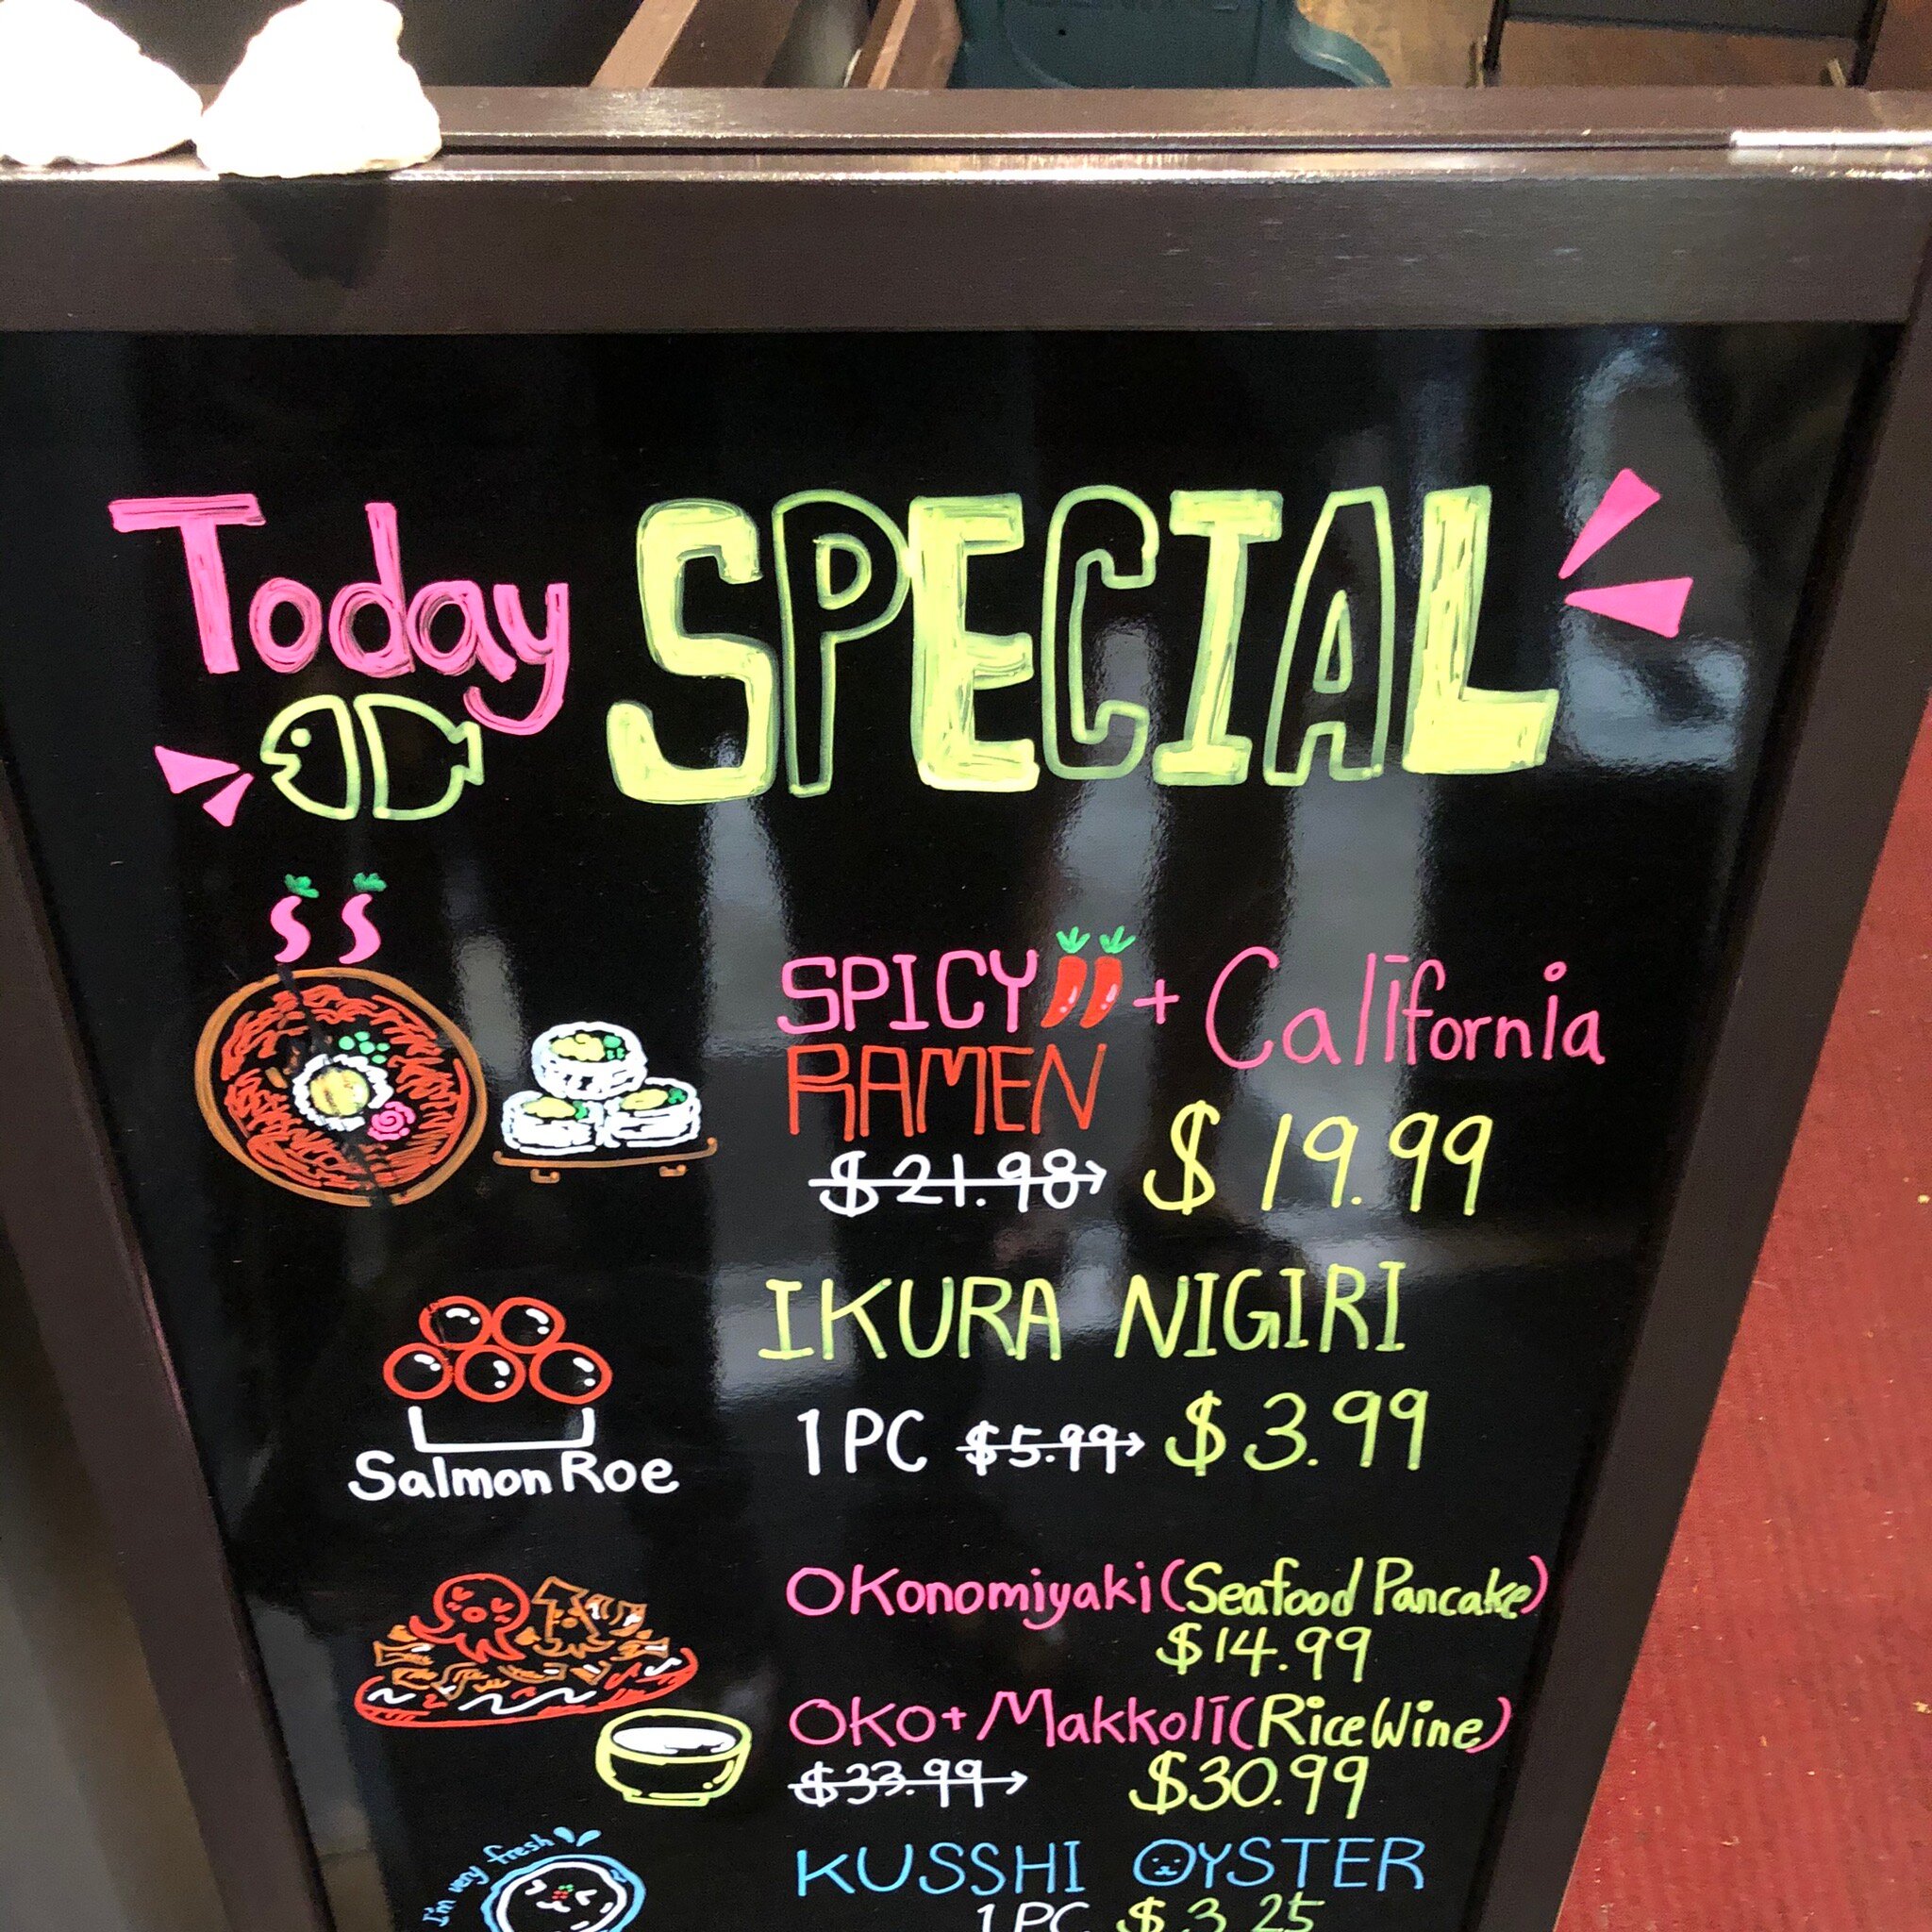 Today SPECIAL
SPICY + California
RAMEN
$21.98 $19.99
IKURA NIGIRI
1PC $5.99 $3.99
Salmon Roe
Okonomiyaki (Seafood Pancake)
$14.99
OKO + Makkoli (Rice Wine)
$33.99 $30.99
I'm very fresh
KUSSHI OYSTER
1PC $3.25